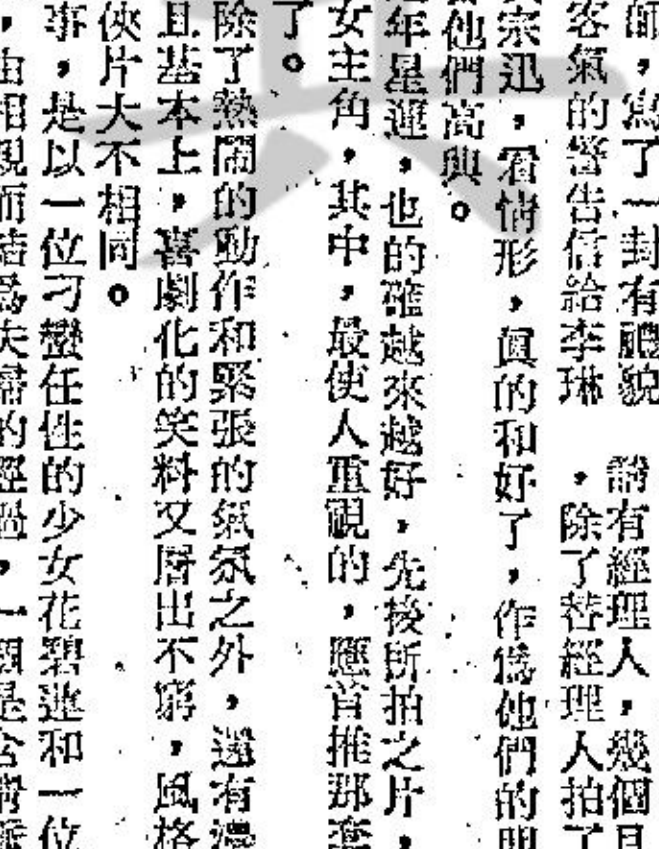 師，寫了一封有禮貌
聘有經理人，幾個月
客氣的警告信給李琳
，除了替經理人拍了
宗迅，看情形，真的和好了，作為他們的
他們高興。
年星運，也的確越來越好，先後所拍之片，
女主角，其中，最使人重視的，應首推那套
了。
除了熱鬧的動作和緊張的氣氛之外，還有
且基本上，喜劇化的笑料又層出不窮，風格
俠片大不相同。
事，是以一位刁蠻任性的少女花碧蓮和一位
，由相親而結為夫婦的經過，一個是